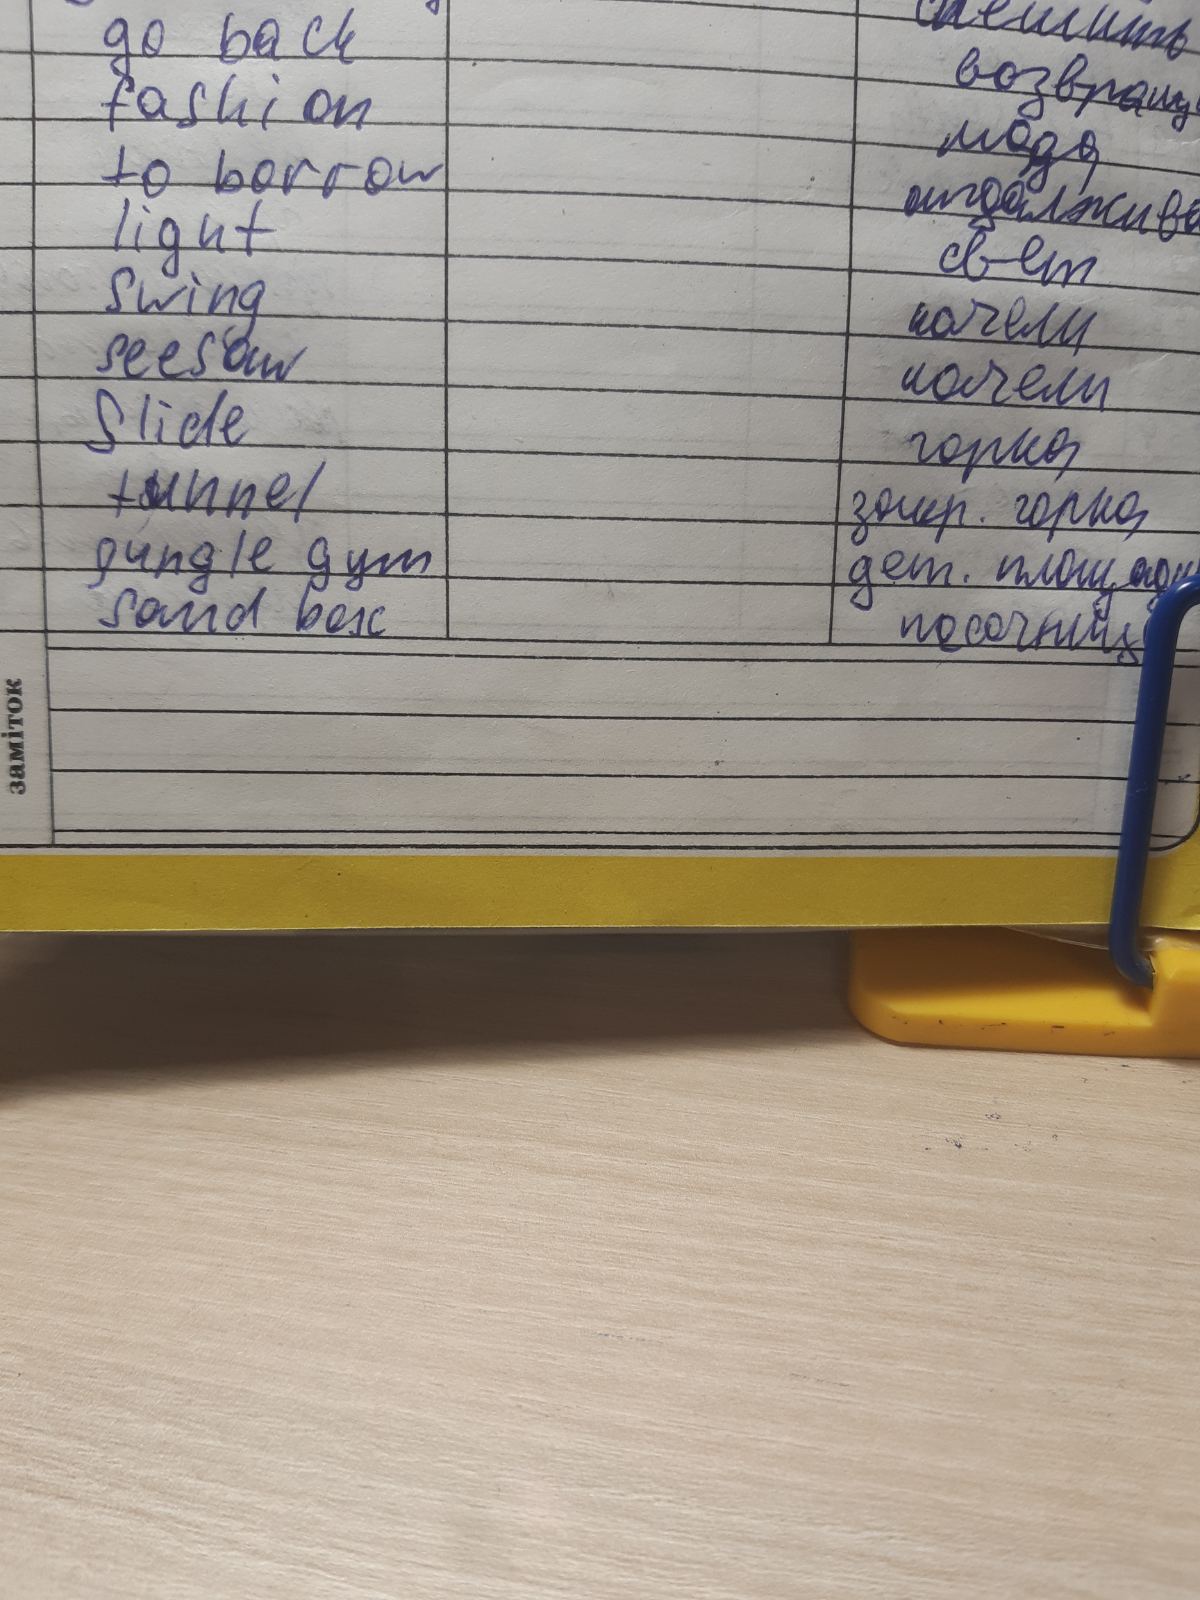 спешить
go back возвращ
fashion мода
to borrow одалжива
light свет
swing качели
seesaw качели
slide горка
tunnel закр. горка
gungle gym дет. площадк
sand box песочниц
заміток